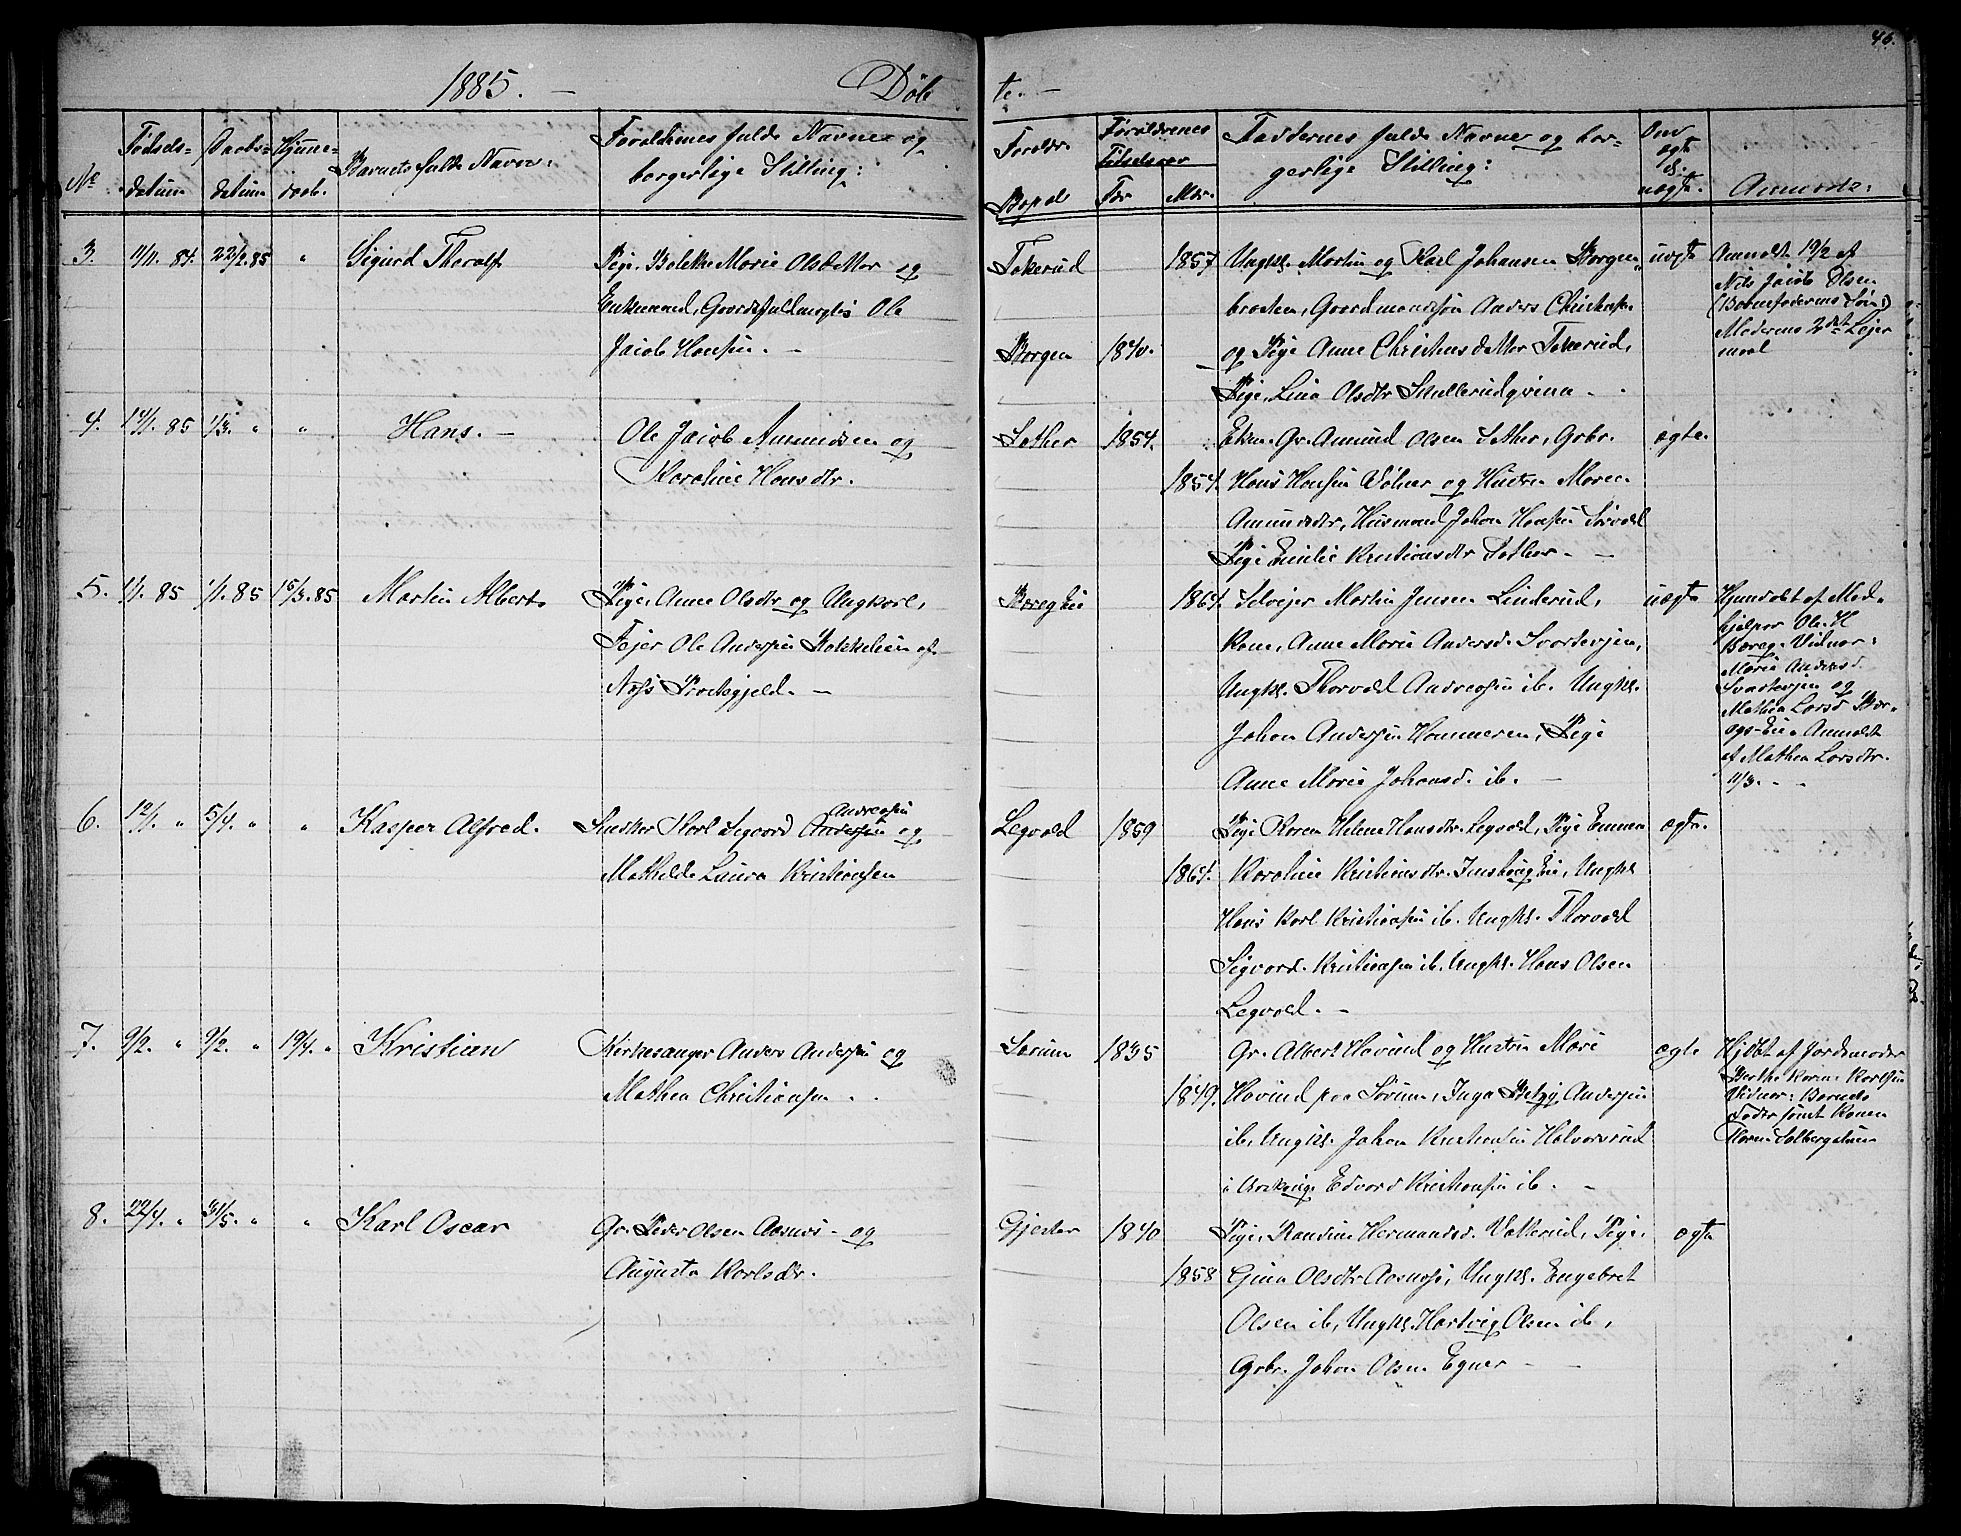 46.
1885. — Døb
te. —
№
Fødsels-
datum
Daabs-
datum
Hjemme-
daab.
Barnets fulde Navn.
Forældrenes fulde Navne og
borgerlige Stilling:
Foreldr.
Bopæl
Forældrenes
Fødselsaar
Far
Mor.
Faddernes fulde Navne og bor-
gerlige Stilling:
Om
ægte
el.
uægte.
Anmærk:
3. 11/11. 84. 22/2. 85 " Sigurd Thoralf
Pige, Bolethe Marie Olsdatter og
Enkemand, Gaardsfuldmægtig Ole
Jacob Hansen. —
Tokerud
Borgen 1840.
1857
Ungkl. Martin og Karl Johansen Borgen-
braaten, Gaardmandssøn Anders Christiansen
og Pige Anne Christensdatter Tokerud,
Pige, Lina Olsdtr Skullerudqvina -
uægte
Anmeldt 19/2 af
Nils Jacob Olsen
(Barnefaderens Søn)
Moderens 2det Leier
maal
4. 14/1. 85 1/3. " " Hans. —
Ole Jacob Amundsen og
Karoline Hansdtr.
Sether 1854.
1854.
Ekm. Gr. Amund Olsen Sether, Grbr.
Hans Hansen Volner og Hustru Maren
Amundsdtr, Husmand Johan Hansen
Pige Emilie Kristiansdtr Sether - —
ægte.
5. 1/1. 85 1/1. 85 15/3. 85 Martin Albert
Pige, Anne Olsdtr og Ungkarl,
Fejer Ole Andersen af
Næs Præstegjeld. —
Boregeie
1864.
Selvejer Martin Jensen Linderud,
Kone, Anne Marie Andersd. Svartevjen,
Ungkl. Thorvald Andreasen ib. Ungkl.
Johan Andersen Hammeren, Pige
Anne Marie Johansd. ib. —
uægte
Hjemdøbt af Med-
hjelper Ole H
Boreg. Vidner:
Marie Andersd.
Svartevjen og
Mathea Larsd Bor-
egs-Eie. Anmeldt
af Mathea Larsdtr.
11/3. - -
6. 12/1. " 5/4. " " Kasper Alfred.
Andreasen
Snedker Karl Sigvard Andersen og
Mathilde Laura Kristiansen
Legvold 1859
1864.
Pige Karen Helene Hansdtr. Legvold, Pige Emma
Karoline Kristiansdtr. , Ungkl
Hans Karl Kristiansen ib. Ungkl. Thorvald
Sigvard Kristiansen ib. Ungkl. Hans Olsen
Legvold. —
ægte.
7. 9/2. " 9/2. " 19/4. " Kristian
Kirkesanger Anders Andersen og
Mathea Christiansen - .
Sørum 1835
1849.
Gr. Albert Hovind og Hustru Mari
Hovind paa Sørum, Inga Andersen
ib, Ungkl. Johan Kristiansen Halvorsrud
i Edvard Kristiansen ib. —
ægte
Hjdbt af Jordemoder
Berthe Karine Karlsen
Vidner: Barnets
Fader samt Konen
Karen Solbergstuen
8. 22/4. " 31/5. " " Karl Oscar
Gr. Peder Olsen Aasnæs - og
Augusta Karlsdtr.
Gjester 1840
1858
Pige, Randine Hermandsd. Vakerud, Pige,
Gina Olsdtr Aasnæs, Ungkl. Engebret
Olsen ib, Ungkl. Hartvig Olsen ib,
Grbr. Johan Olsen Egner — —
ægte